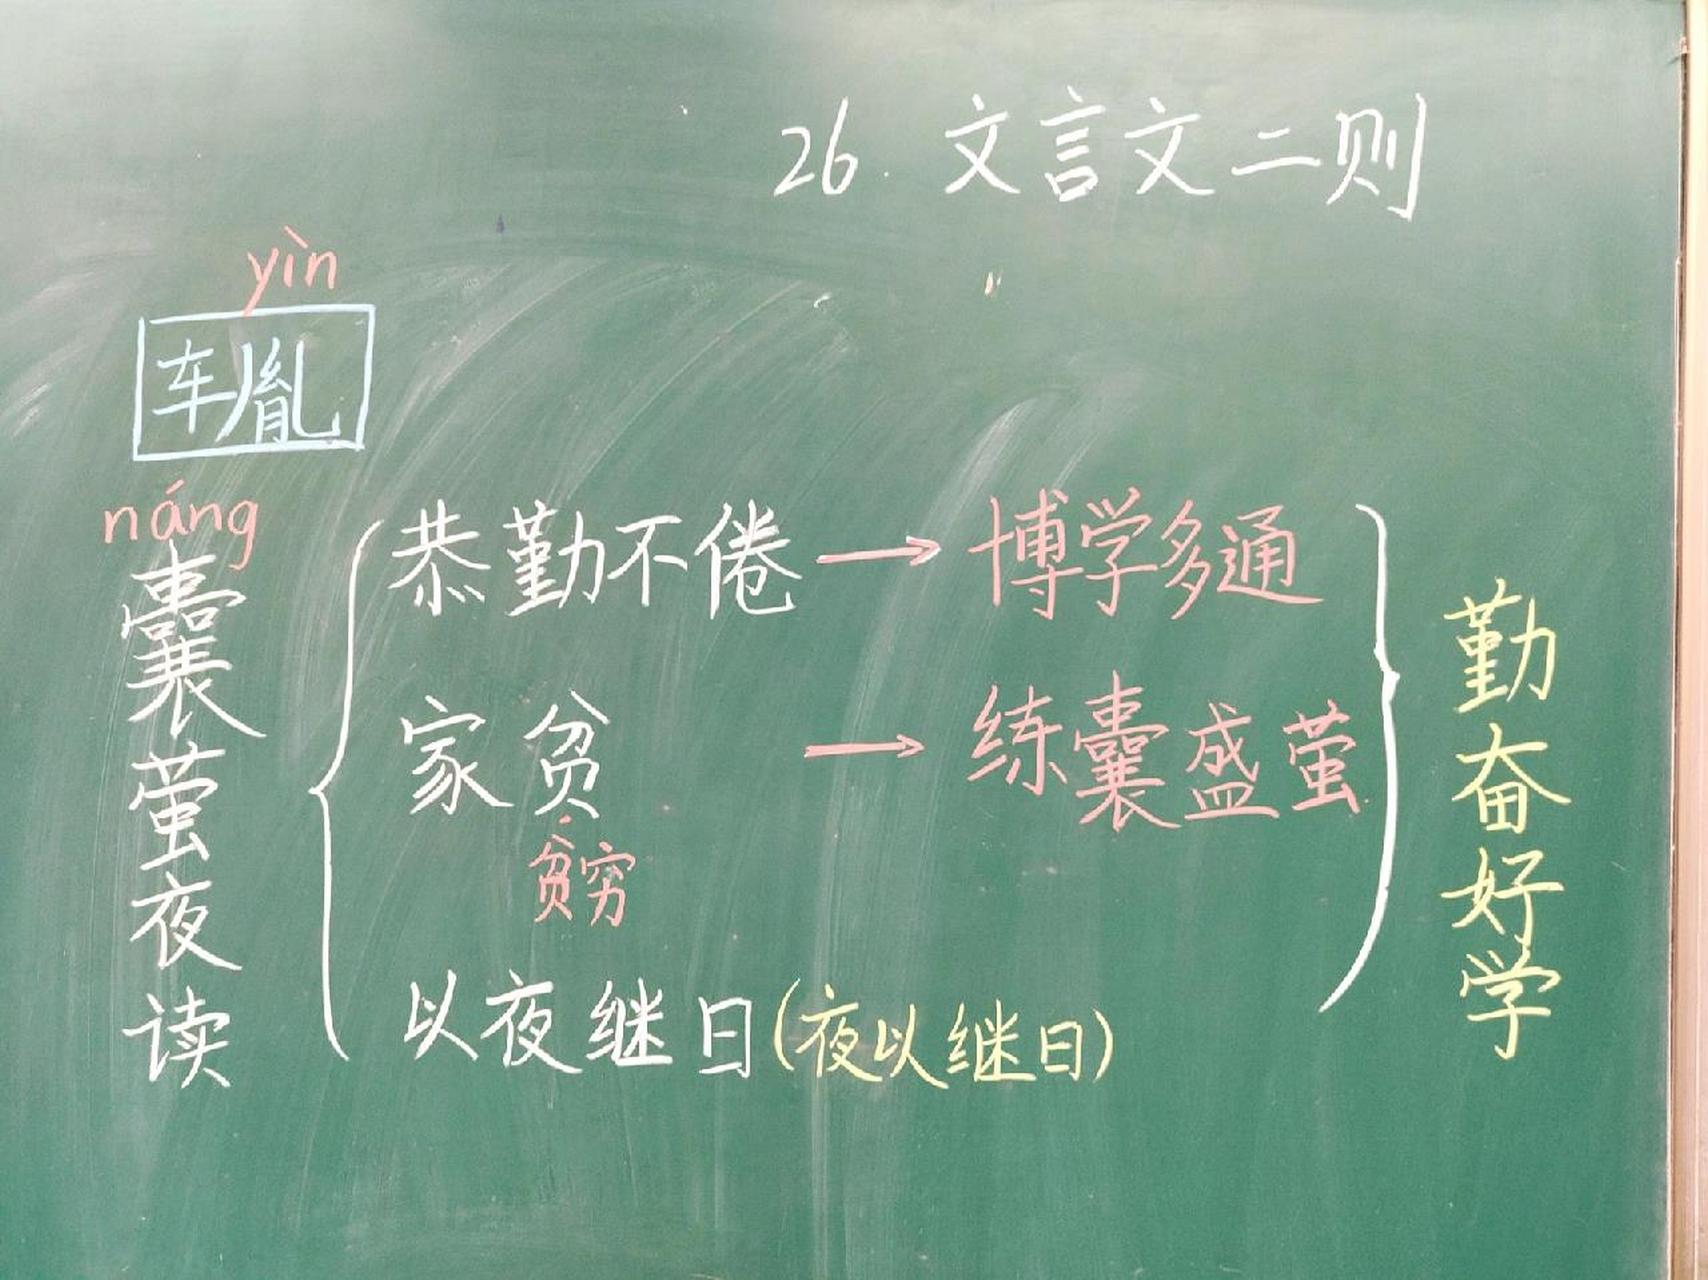 26. 文言文二则
yìn
车胤
náng
囊萤夜读
恭勤不倦→博学多通
家贫→练囊盛萤
贫穷
以夜继日(夜以继日)
勤奋好学